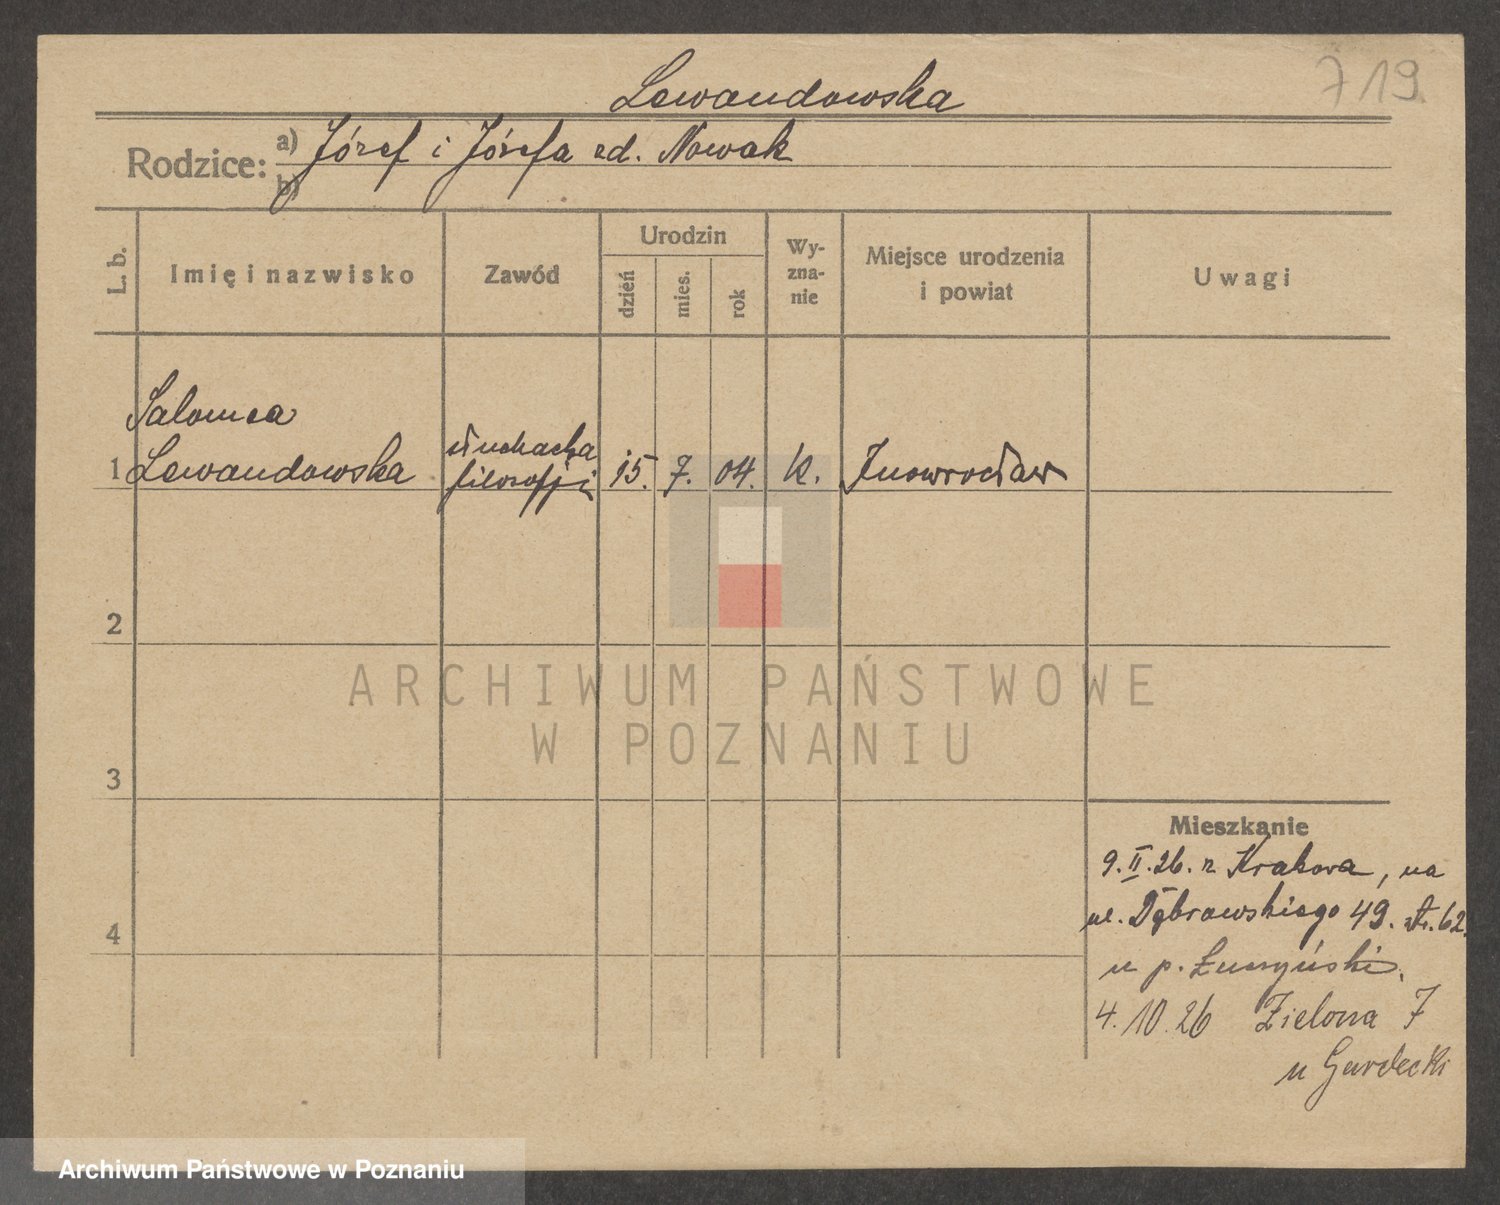 719
Lewandowska
Rodzice:
a) Józef i Józefa zd. Nowak
b)
L. b.
Imię i nazwisko
Zawód
Urodzin
dzień
mies.
rok
Wy-
zna-
nie
Miejsce urodzenia
i powiat
Uwagi
Salomea
1 Lewandowska
słuchaczka
filozofji
15. 7. 04. k. Inowrocław
2
3
4
Mieszkanie
9.II.26. z Krakowa, na
ul. Dąbrowskiego 49.
u p.
4.10.26 Zielona 7
u Gurdecki
ARCHIWUM PAŃSTWOWE
W POZNANIU
Archiwum Państwowe w Poznaniu